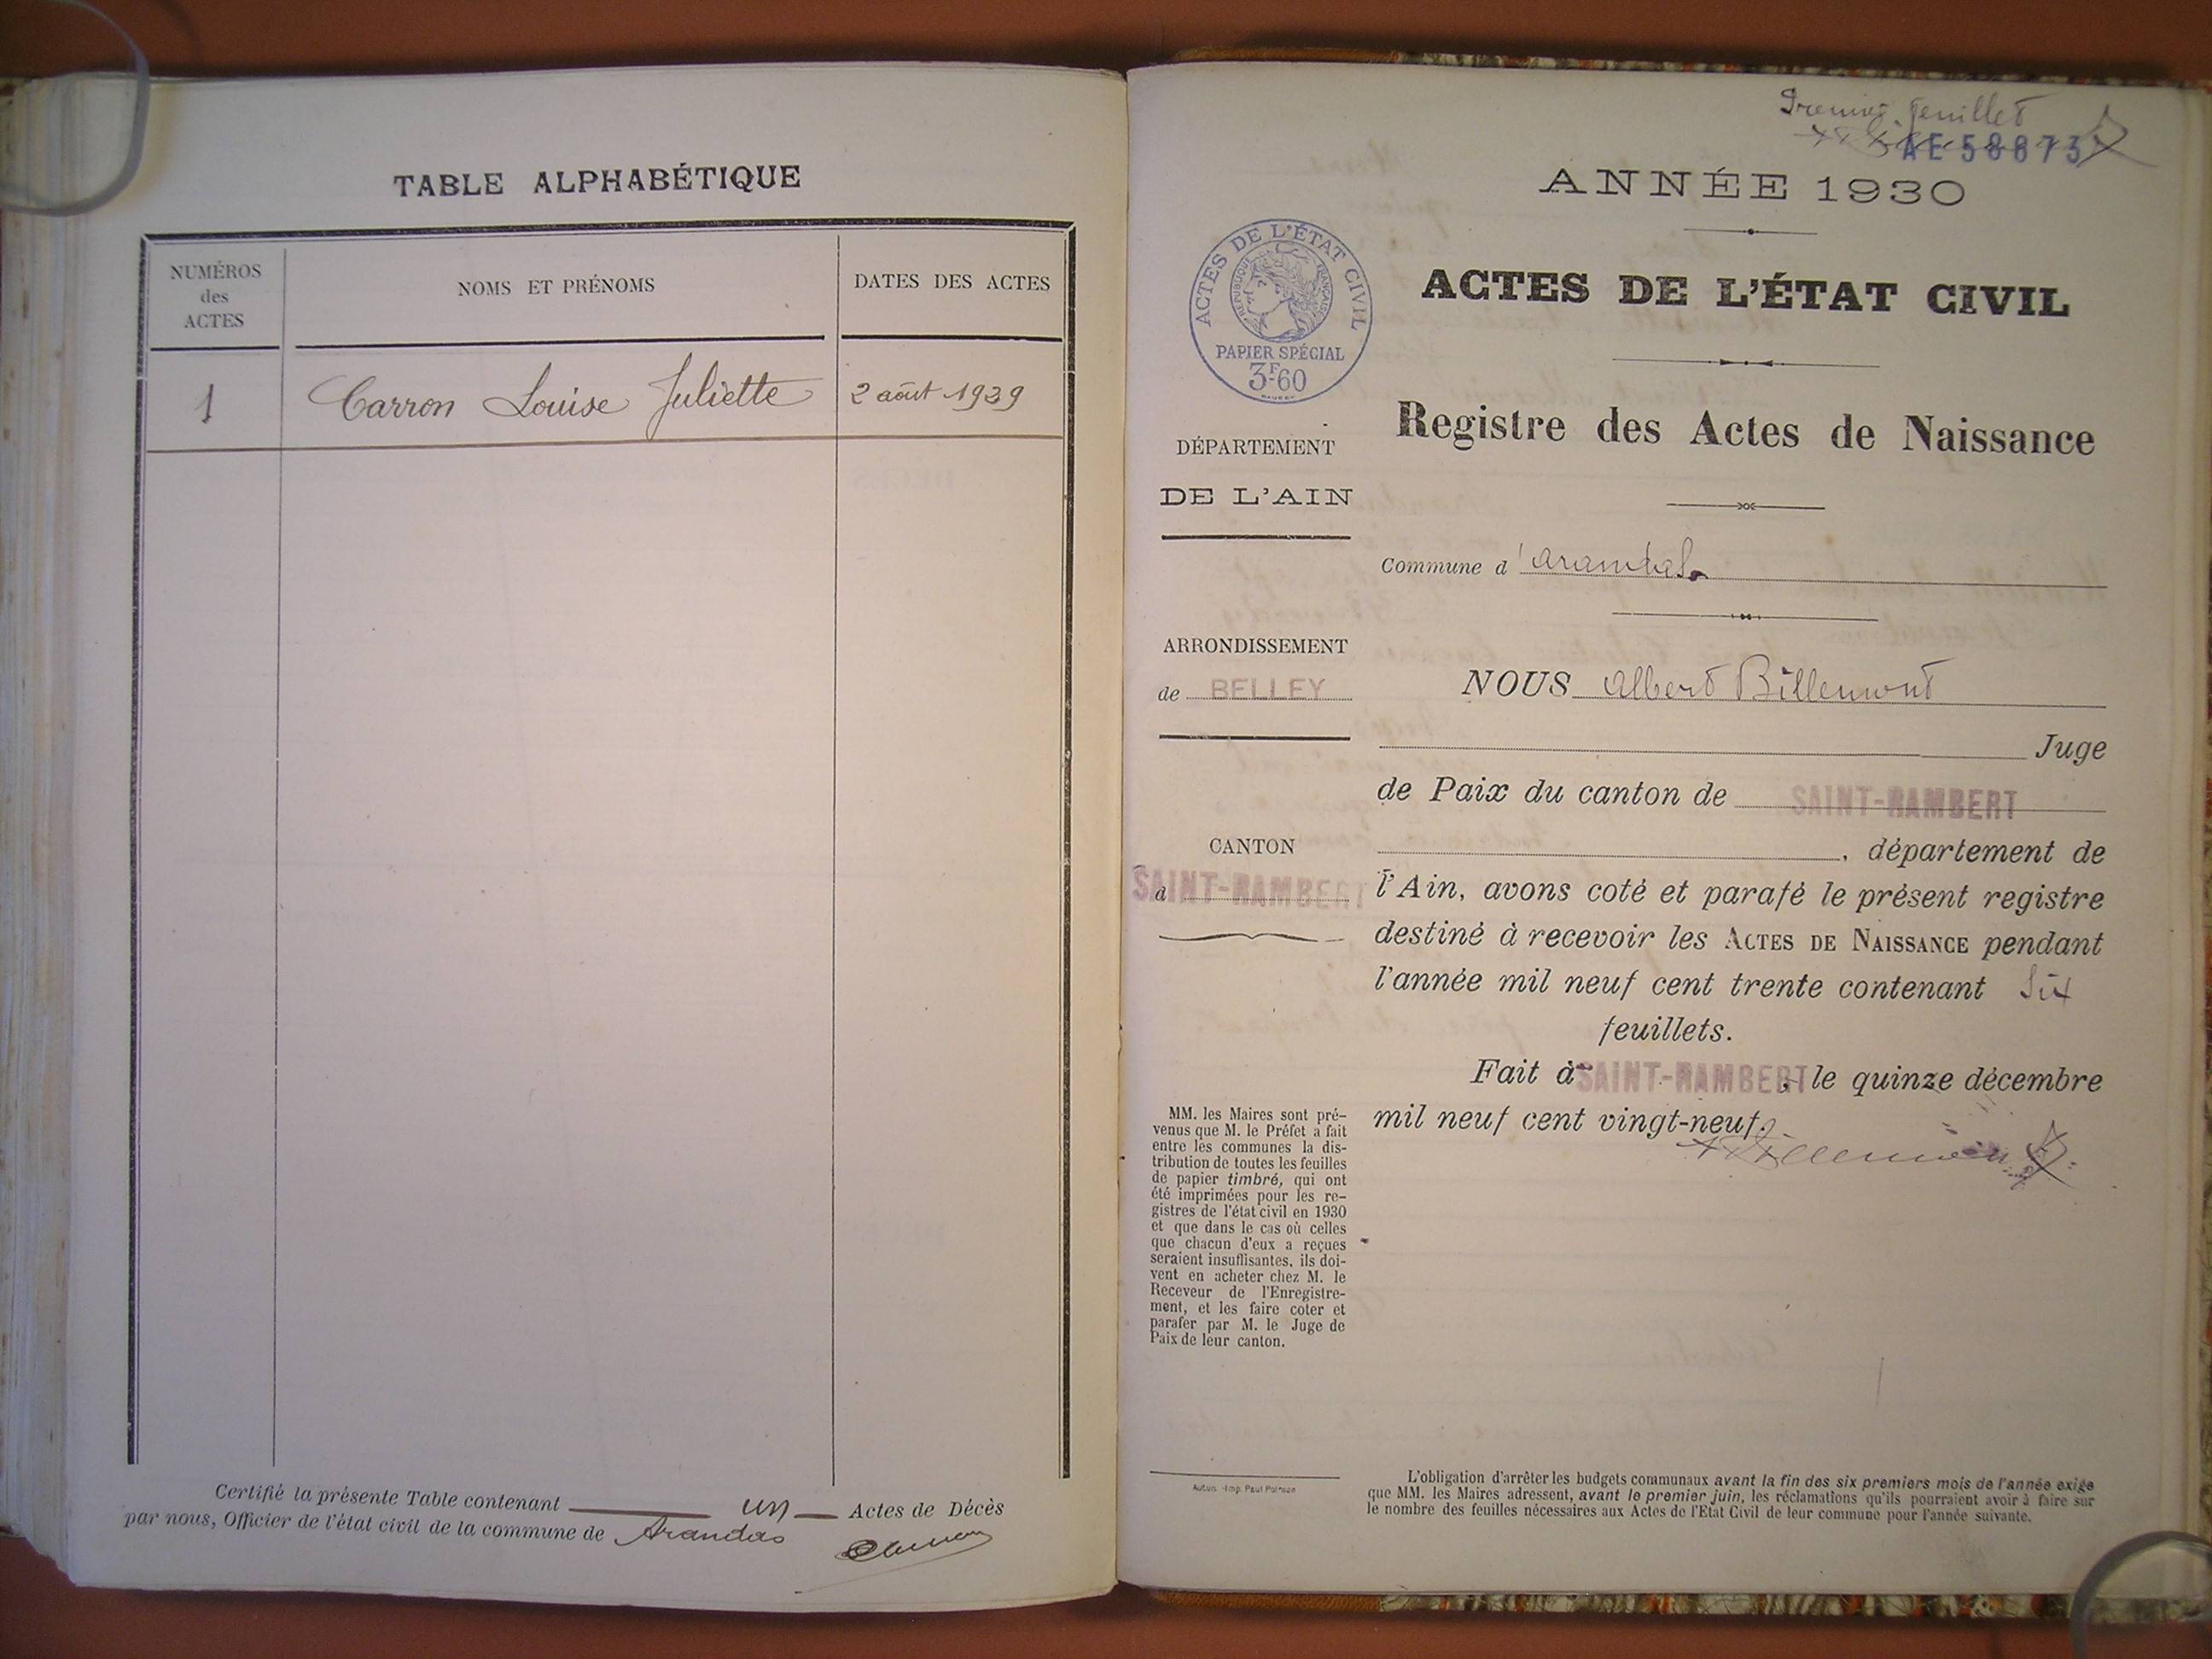 TABLE ALPHABÉTIQUE
NUMÉROS
des
ACTES
NOMS ET PRÉNOMS
DATES DES ACTES
1
Carron Louise Juliette
2 août 1939
Certifié la présente Table contenant un Actes de Décès
par nous, Officier de l'état civil de la commune de Arandas
Premier feuillet
AE 58873
ANNÉE 1930
ACTES DE L'ÉTAT CIVIL
RÉPUBLIQUE FRANÇAISE
PAPIER SPÉCIAL
3F60
ACTES DE L'ÉTAT CIVIL
Registre des Actes de Naissance
DÉPARTEMENT
DE L'AIN
Commune d'Arandas
ARRONDISSEMENT
de BELLEY
CANTON
d SAINT-RAMBERT
NOUS Albert Billemont
Juge
de Paix du canton de SAINT-RAMBERT
, département de
l'Ain, avons coté et parafé le présent registre
destiné à recevoir les ACTES DE NAISSANCE pendant
l'année mil neuf cent trente contenant six
feuillets.
Fait à SAINT-RAMBERT, le quinze décembre
mil neuf cent vingt-neuf.
Billemont
MM. les Maires sont pré-
venus que M. le Préfet a fait
entre les communes la dis-
tribution de toutes les feuilles
de papier timbré, qui ont
été imprimées pour les re-
gistres de l'état civil en 1930
et que dans le cas où celles
que chacun d'eux a reçues
seraient insuffisantes, ils doi-
vent en acheter chez M. le
Receveur de l'Enregistre-
ment, et les faire coter et
parafer par M. le Juge de
Paix de leur canton.
Autun. -Imp. Paul
L'obligation d'arrêter les budgets communaux avant la fin des six premiers mois de l'année exige
que MM. les Maires adressent, avant le premier juin, les réclamations qu'ils pourraient avoir à faire sur
le nombre des feuilles nécessaires aux Actes de l'Etat Civil de leur commune pour l'année suivante.